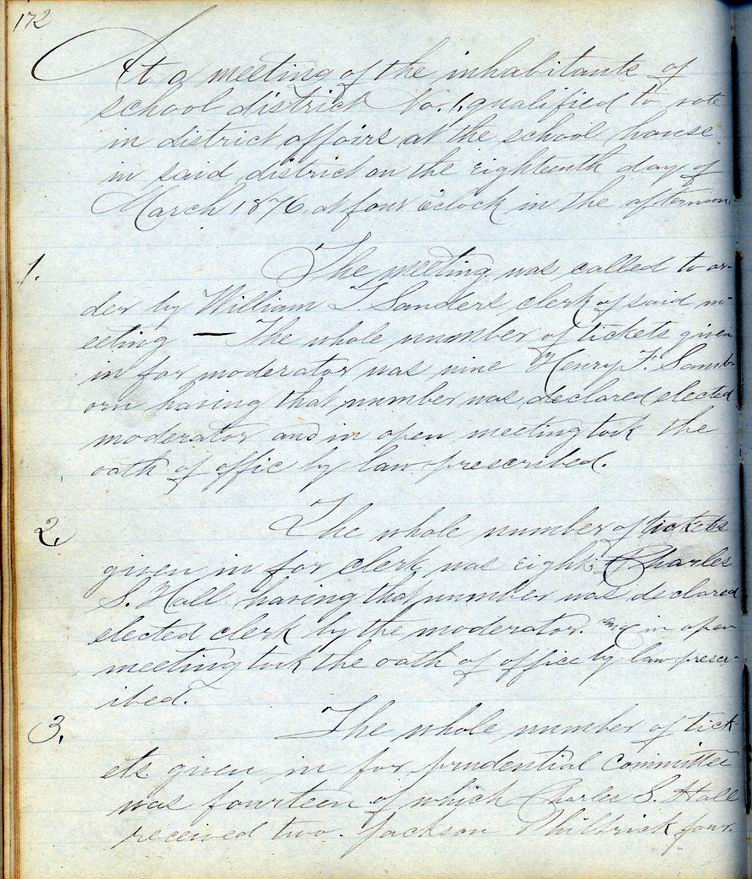 172
At a meeting of the inhabitants of
school district No. 1, qualified to vote
in district affairs at the school house
in said district on the eighteenth day of
March 1876, at four o'clock in the afternoon.
1. The meeting was called to or-
der by William T. Sanders clerk of said m-
eeting — The whole number of tickets given
in for moderator was nine Henry F. Sanb-
orn having that number was declared elected
moderator and in open meeting took the
oath of offic by law prescribed.
2. The whole number of tickets
given in for clerk was eight Charles
S. Hall having that number was declared
elected clerk by the moderator. in open
meeting took the oath of office by law prescr-
ibed.
3. The whole number of tick
ets given in for prudential Committee
was fourteen of which Charles S. Hall
received two. Jackson Philbrick four.